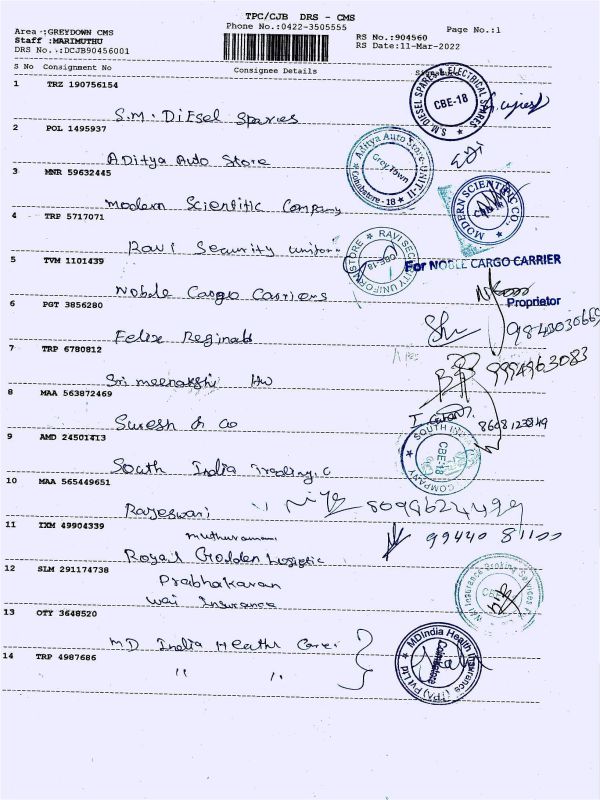 TPC/CJB DRS - CMS
Phone No.:0422-3505555
Page No.:1
Area :GREYDOWN CMS
Staff :MARIMUTHU
DRS No.:DCJB90456001
RS No.:904560
RS Date:11-Mar-2022
S No Consignment No Consignee Details
1 TRZ 190756154
S.M. Diesel Spares
S.M. DIESEL SPARES & ELECTRICAL SPARES
CBE-18
2 POL 1495937
Aditya Auto Store
Aditya Auto Store-UNIT-II
Grey Town
Coimbatore - 18
3 MNR 59632445
Modern Scientific Company
MODERN SCIENTIFIC CO.,
4 TRP 5717071
Ravi Security uniform
RAVI SECURITY UNIFORM STORE
CBE-18.
5 TVM 1101439
For NOBLE CARGO CARRIER
Noble Cargo Carriers
Proprietor
6 PGT 3856280
Felix Reginald
7 TRP 6780812
9994963083
Sri meenakshi Hw
8 MAA 563872469
Suresh & Co
9 AMD 24501413
South India Trading.C
SOUTH
COMPANY
CBE-18
10 MAA 565449651
Rajeswari
11 IXM 49904339
99440 81100
Prabhakaran
12 SLM 291174738
Wai Insurance
Insurance Broking Services
13 OTY 3648520
MD India Health Care
14 TRP 4987686
" "
MDIndia Health Insurance (TPA) Pvt Ltd
Coimbatore